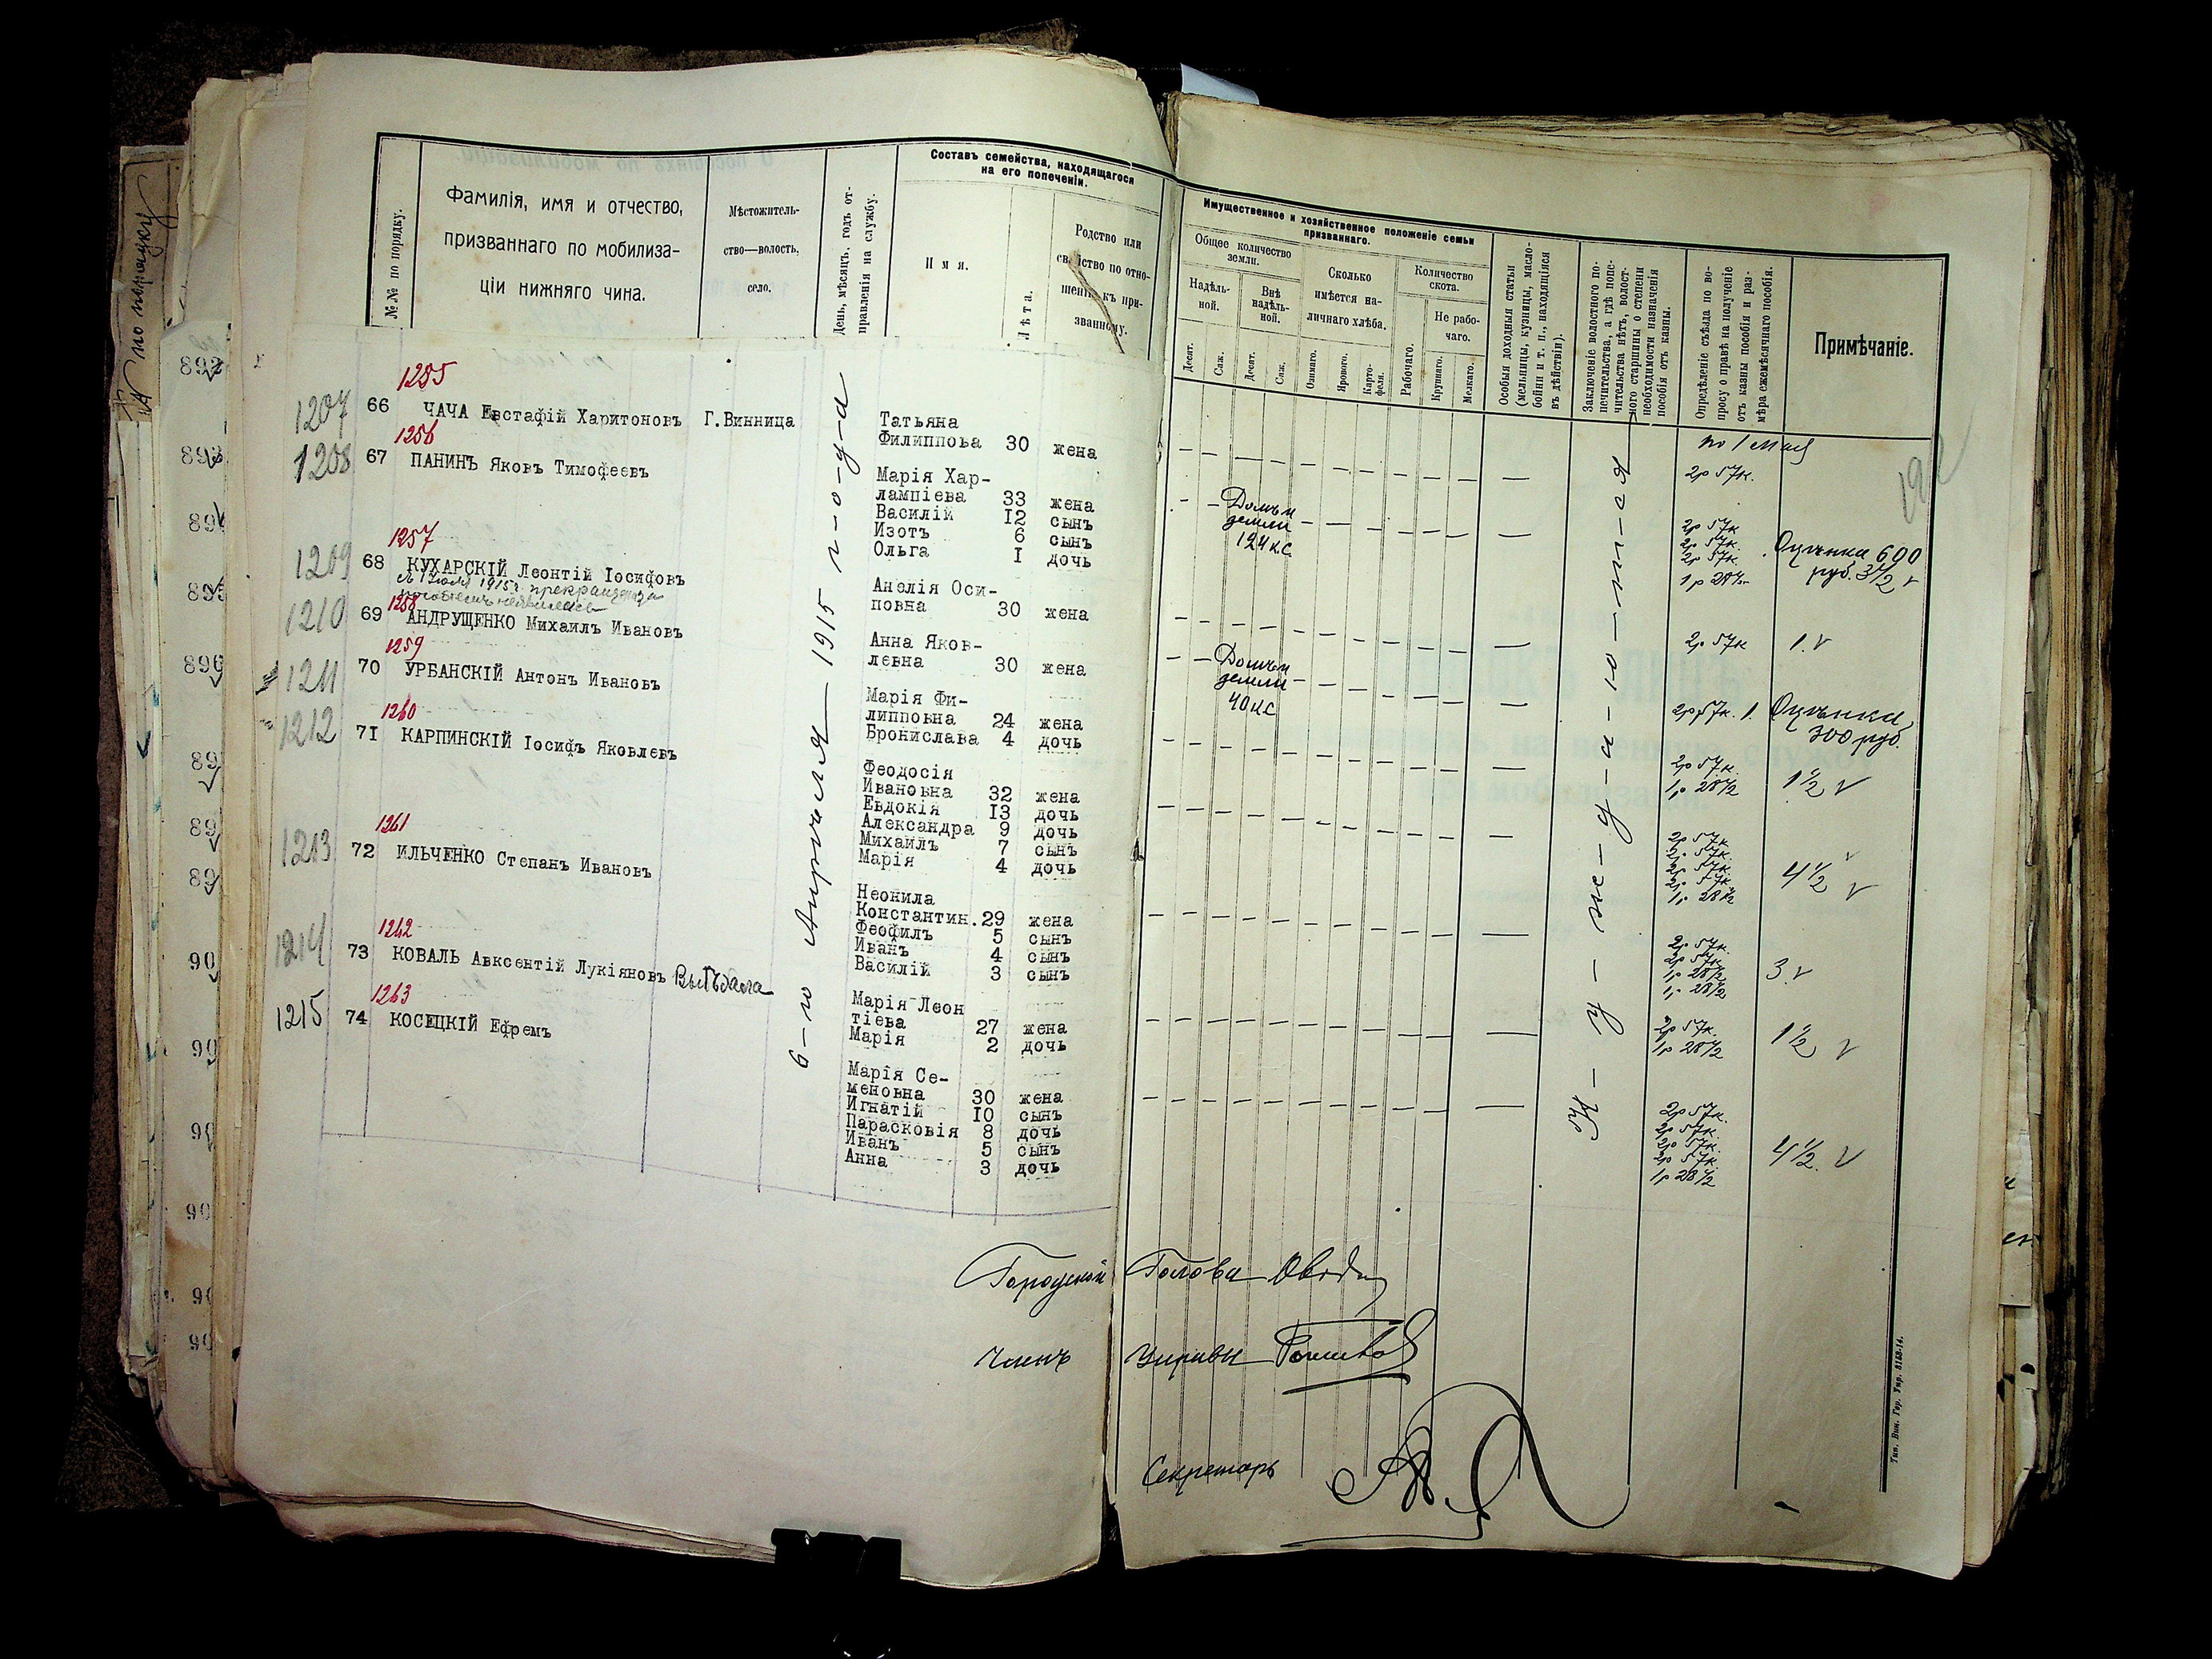 №№ по порядку.
Фамилія, имя и отчество,
призваннаго по мобилиза-
ціи нижняго чина.
Мѣстожитель-
ство—волость,
село.
День, мѣсяцъ, годъ от-
правленія на службу.
Составъ семейства, находящагося
на его попеченіи.
Имя.
Лѣта.
Родство или
свойство по отно-
шенію къ при-
званному.
Имущественное и хозяйственное положеніе семьи
призваннаго.
Общее количество
земли.
Надѣль-
ной.
Внѣ
надѣль-
ной.
Десят.
Саж.
Десят.
Саж.
Сколько
имѣется на-
личнаго хлѣба.
Озимаго.
Ярового.
Карто-
феля.
Количество
скота.
Рабочаго.
Не рабо-
чаго.
Крупнаго.
Мелкаго.
Особыя доходныя статьи
(мельницы, кузницы, масло-
бойни и т. п., находящіяся
въ дѣйствіи).
Заключеніе волостного по-
печительства, а гдѣ попе-
чительства нѣтъ, волост-
ного старшины о степени
необходимости назначенія
пособія отъ казны.
Опредѣленіе съѣзда по во-
просу о правѣ на полученіе
отъ казны пособія и раз-
мѣра ежемѣсячнаго пособія.
Примѣчаніе.
№ по порядку
6-го Апрѣля 1915 г-о-д-а
Н-у-ж-д-а-ю-т-с-я
по 1 мая
1255
1207 66 ЧАЧА Евстафій Харитоновъ Г.Винница
Татьяна
Филиппова 30 жена
2р 57к.
1256
1208 67 ПАНИНЪ Яковъ Тимофеевъ
Марія Хар-
лампіева 33 жена
Василій 12 сынъ
Изотъ 6 сынъ
Ольга I дочь
Домъ и
земли
124 к.с.
2р 57к
2р 57к.
2р 57к
1р 28½
Оцѣнка 600
руб. 3½ v
1257
1209 68 КУХАРСКІЙ Леонтій Іосифовъ
1915 г. прекращена
Анелія Оси-
повна 30 жена
2р 57к 1. v
1258
1210 69 АНДРУЩЕНКО Михаилъ Ивановъ
Анна Яков-
левна 30 жена
Домъ и
земли
40 к.с
2р 57к. 1. Оцѣнка
300 руб.
1259
1211 70 УРБАНСКІЙ Антонъ Ивановъ
Марія Фи-
липповна 24 жена
Бронислава 4 дочь
2р 57к.
1р 28½ 1½ v
1260
1212 7I КАРПИНСКІЙ Іосифъ Яковлевъ
Феодосія
Ивановна 32 жена
Евдокія I3 дочь
Александра 9 дочь
Михаилъ 7 сынъ
Марія 4 дочь
2р 57к.
2р 57к.
2р 57к.
2р 57к
1р 28½
4½ v
1261
1213 72 ИЛЬЧЕНКО Степанъ Ивановъ
Неонила
Константин. 29 жена
Феофилъ 5 сынъ
Иванъ 4 сынъ
Василій 3 сынъ
2р 57к.
2р 57к
1р 28½
1р 28½
3. v
1262
1214 73 КОВАЛЬ Авксентій Лукіяновъ Выѣхала
Марія Леон
тіева 27 жена
Марія 2 дочь
2р 57к.
1р 28½ 1½ v
1263
1215 74 КОСЕЦКІЙ Ефремъ
Марія Се-
меновна 30 жена
Игнатій I0 сынъ
Парасковія 8 дочь
Иванъ 5 сынъ
Анна 3 дочь
2р 57к.
2р 57к.
2р 57к.
2р 57к
1р 28½
4½. v
Городской Голова
Членъ Управы
Секретарь
Тип. Вин. Гор. Упр. 3143-14.